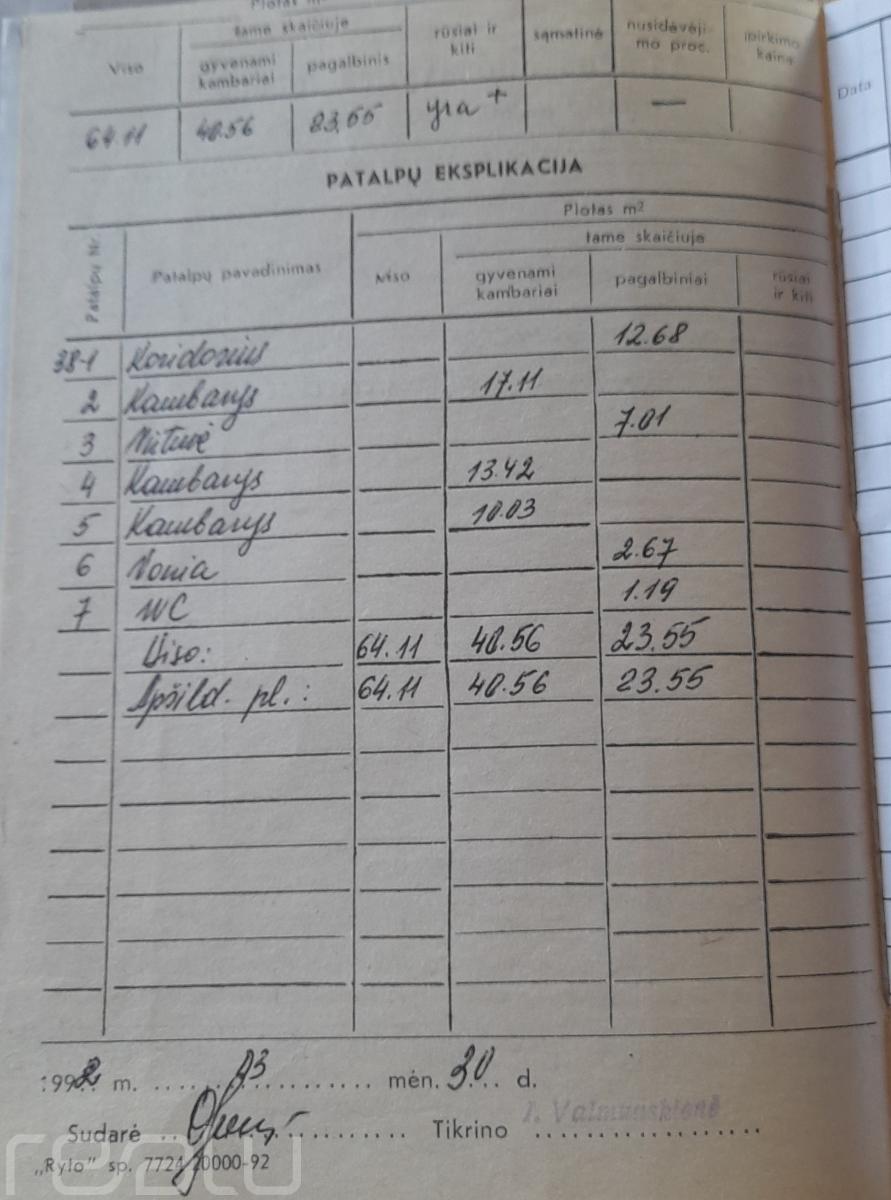 Plotas m²
tame skaičiuje
Viso gyvenami kambariai pagalbinis rūsiai ir kiti sąmatinė nusidėvėji-mo proc. įpirkimo kaina
64.11 40.56 23,55 yra + —
Data
PATALPŲ EKSPLIKACIJA
Plotas m²
tame skaičiuje
Patalpų Nr. Patalpų pavadinimas Viso gyvenami kambariai pagalbiniai rūsiai ir kiti
38-1 Koridorius 12.68
2 Kambarys 17.11
3 Virtuvė 7.01
4 Kambarys 13.42
5 Kambarys 10.03
6 Vonia 2.67
7 WC 1.19
Viso: 64.11 40.56 23.55
Apšild. pl.: 64.11 40.56 23.55
1992 m. 03 mėn. 30 d.
Sudarė Tikrino
„Rylo" sp. 7724 20000-92